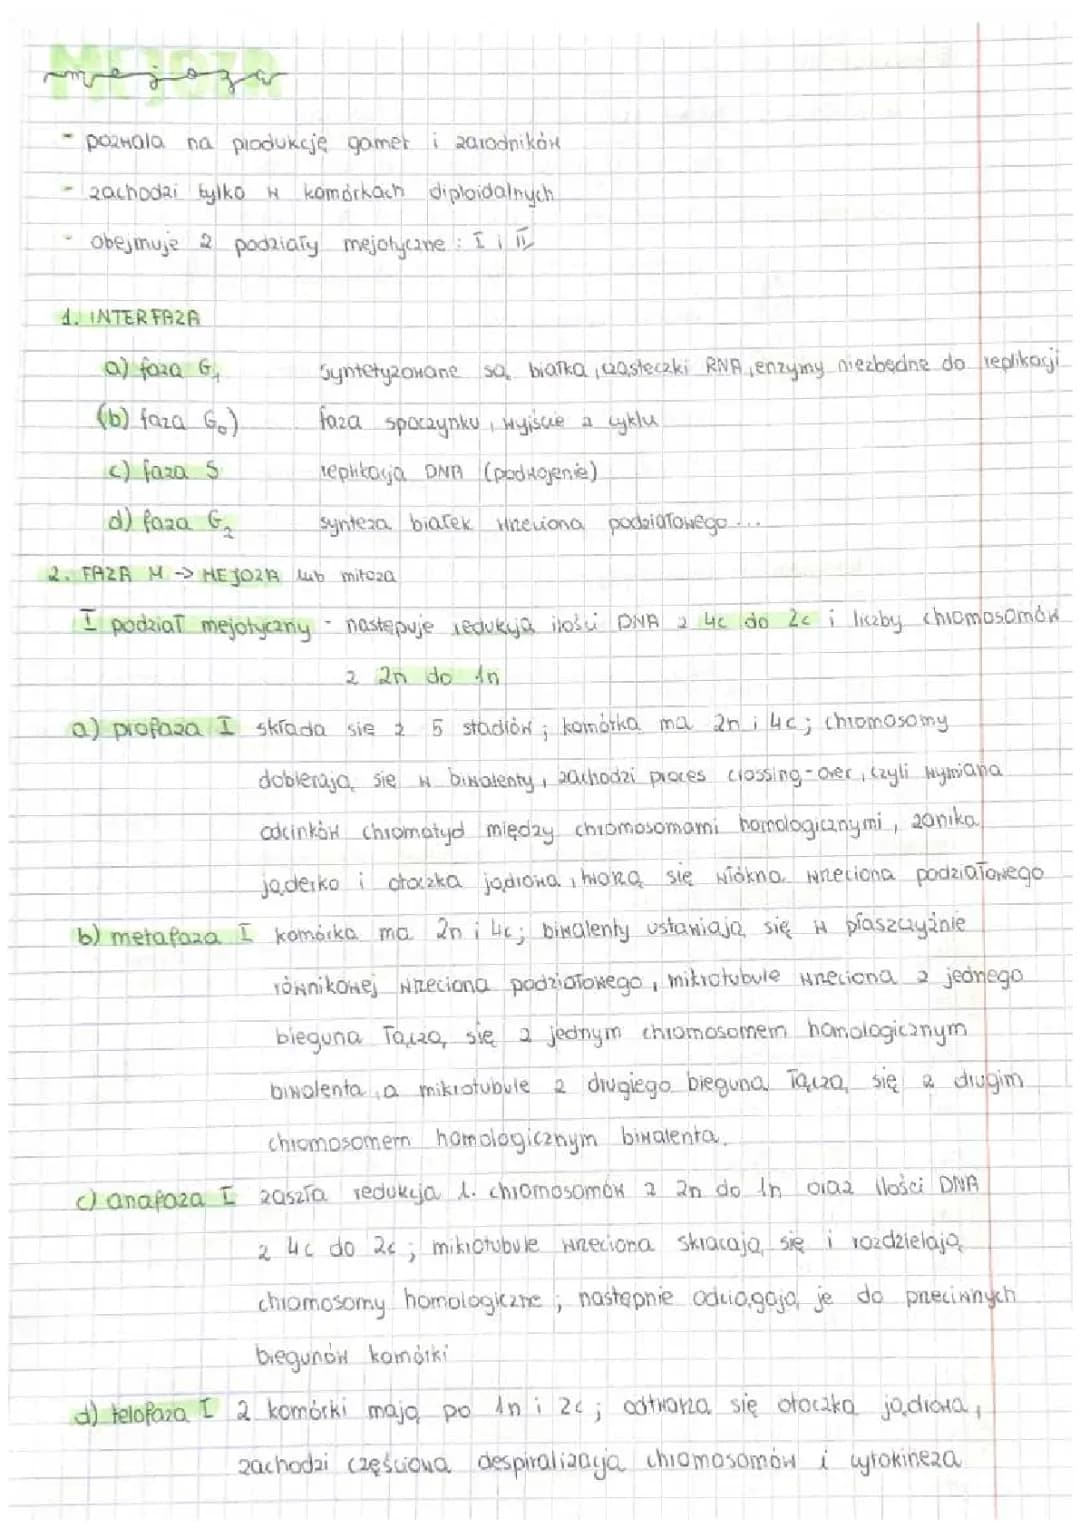 MEJOZA
mejoza
- pozwala na produkcję gamet i zarodników
- zachodzi tylko w komórkach diploidalnych
- obejmuje 2 podziały mejotyczne: I i II
1. INTERFAZA
a) faza G₁ syntetyzowane są białka, cząsteczki RNA, enzymy niezbędne do replikacji
(b) faza G₀) faza spoczynku, wyjście z cyklu
c) faza S replikacja DNA (podwojenie)
d) faza G₂ synteza białek wrzeciona podziałowego...
2. FAZA M -> MEJOZA lub mitoza
I podział mejotyczny - następuje redukcja ilości DNA z 4c do 2c i liczby chromosomów
z 2n do 1n
a) profaza I składa się z 5 stadiów; komórka ma 2n i 4c; chromosomy
dobierają się w biwalenty, zachodzi proces crossing-over, czyli wymiana
odcinków chromatyd między chromosomami homologicznymi, zanika
jąderko i otoczka jądrowa, tworzą się włókna wrzeciona podziałowego
b) metafaza I komórka ma 2n i 4c; biwalenty ustawiają się w płaszczyźnie
równikowej wrzeciona podziałowego, mikrotubule wrzeciona z jednego
bieguna łączą się z jednym chromosomem homologicznym
biwalenta, a mikrotubule z drugiego bieguna łączą się z drugim
chromosomem homologicznym biwalenta.
c) anafaza I zaszła redukcja l. chromosomów z 2n do 1n oraz ilości DNA
z 4c do 2c; mikrotubule wrzeciona skracają się i rozdzielają
chromosomy homologiczne; następnie odciągają je do przeciwnych
biegunów komórki
d) telofaza I 2 komórki mają po 1n i 2c; odtwarza się otoczka jądrowa,
zachodzi częściowa despiralizacja chromosomów i cytokineza